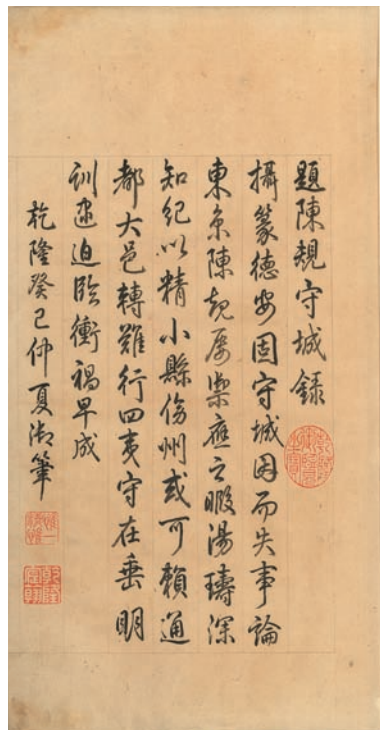 題陳規守城錄
攝篆德安固守城因而失事論
東京陳規屢禦應之暇湯璹深
知紀以精小縣傍州或可賴通
都大邑轉難行四夷守在垂明
訓逮迫臨衝禍早成
乾隆癸巳仲夏御筆
乾隆御覽之寶
惟精惟一
乾隆宸翰